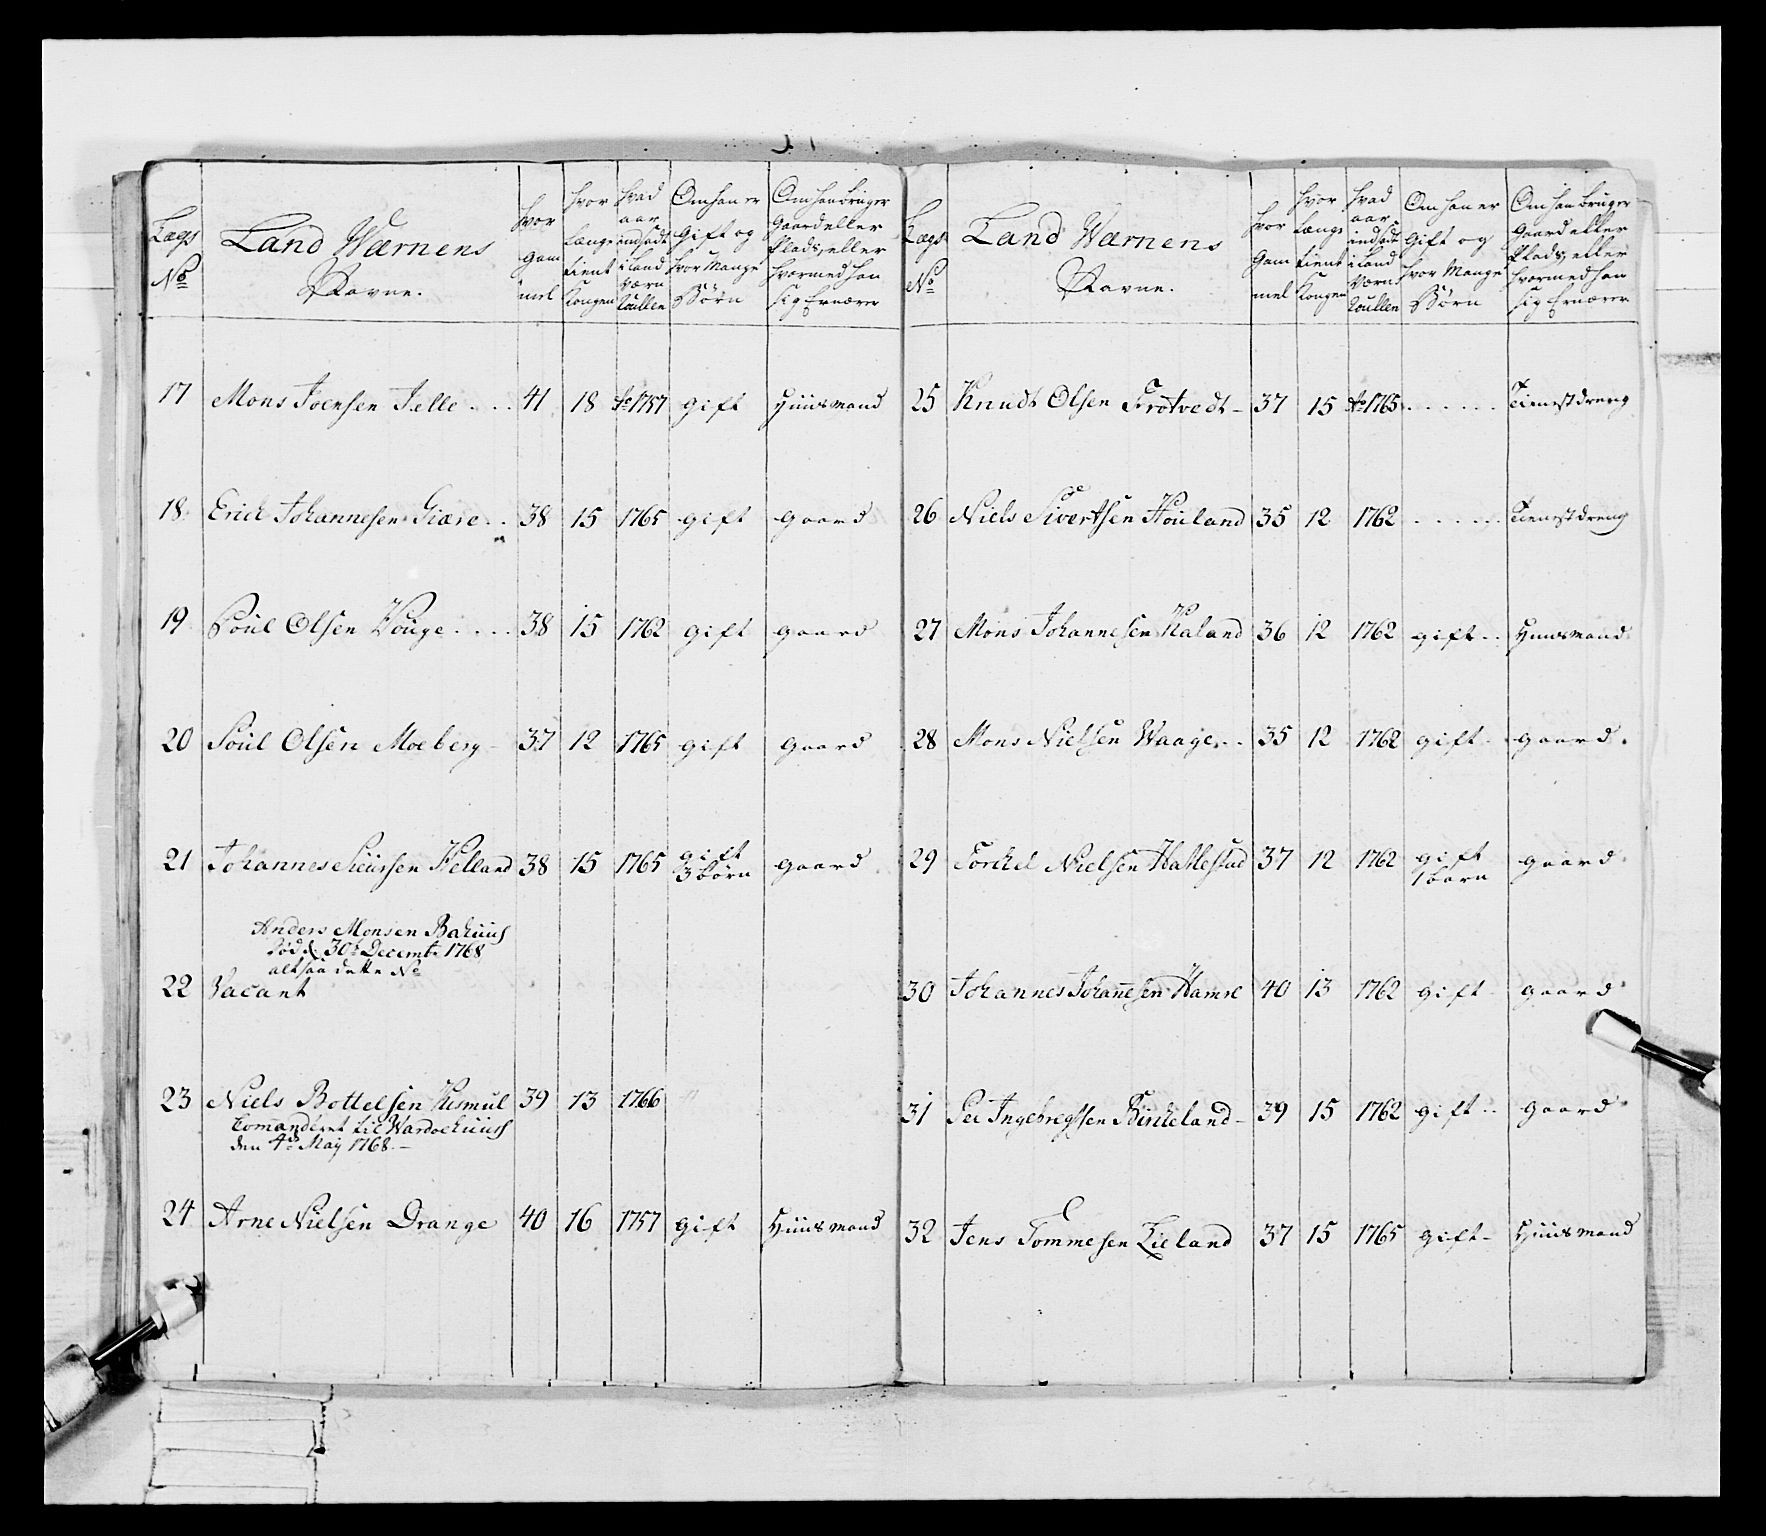 Lægs No
Land Wærnens Navne.
hvor gammel
hvor Længe tient Kongen
hvad aar indsadt i Land Værns Roullen
Om han er Gift og hvor Mange Børn
Om han bruger Gaard eller Plads, eller hvormed han sig Ernærer
17 Mons Joensen Telle . . . 41 18 Ao 1757 gift Huusmand
18 Erich Johannesen Giære . . 38 15 1765 gift gaard
19 Poul Olsen Kouge . . . . 38 15 1762 gift gaard
20 Poul Olsen Moeberg - 37 12 1765 gift gaard
21 Johannes Siursen Helland 38 15 1765 gift 3 børn gaard
Anders Monsen Bahuus
død d. 30te Decembr 1768
altsaa dette No
22 Vacant
23 Niels Bottelsen Hesmul 39 13 1766
Comanderet til Wardoehuus
den 4de Maÿ 1768. -
24 Arne Nielsen Drange 40 16 1757 gift Huusmand
Lægs No
Land Wærnens Navne.
hvor Gammel
hvor Længe tient Kongen
hvad aar indsadt i Land Værns Roullen
Om han er Gift og hvor Mange Børn
Om han bruger Gaard eller Plads, eller hvormed han sig Ernærer
25 Knudt Olsen Trøtvedt - 37 15 Ao 1765 . . . . . . Tienestdreng
26 Niels Sivertsen Houland 35 12 1762 . . . . . . Tienestdreng
27 Mons Johannesen Haland 36 12 1762 gift . . Huusmand
28 Mons Nielsen Waage . . . 35 12 1762 gift gaard.
29 Torchel Nielsen Hatlestad 37 12 1762 gift 1 barn gaard
30 Johannes Johannesen Hamre 40 13 1762 gift gaard
31 Per Ingebregtsen Birkeland - 39 15 1762 gift . . gaard
32 Jens Tommesen Lieland 37 15 1765 gift - Huusmand